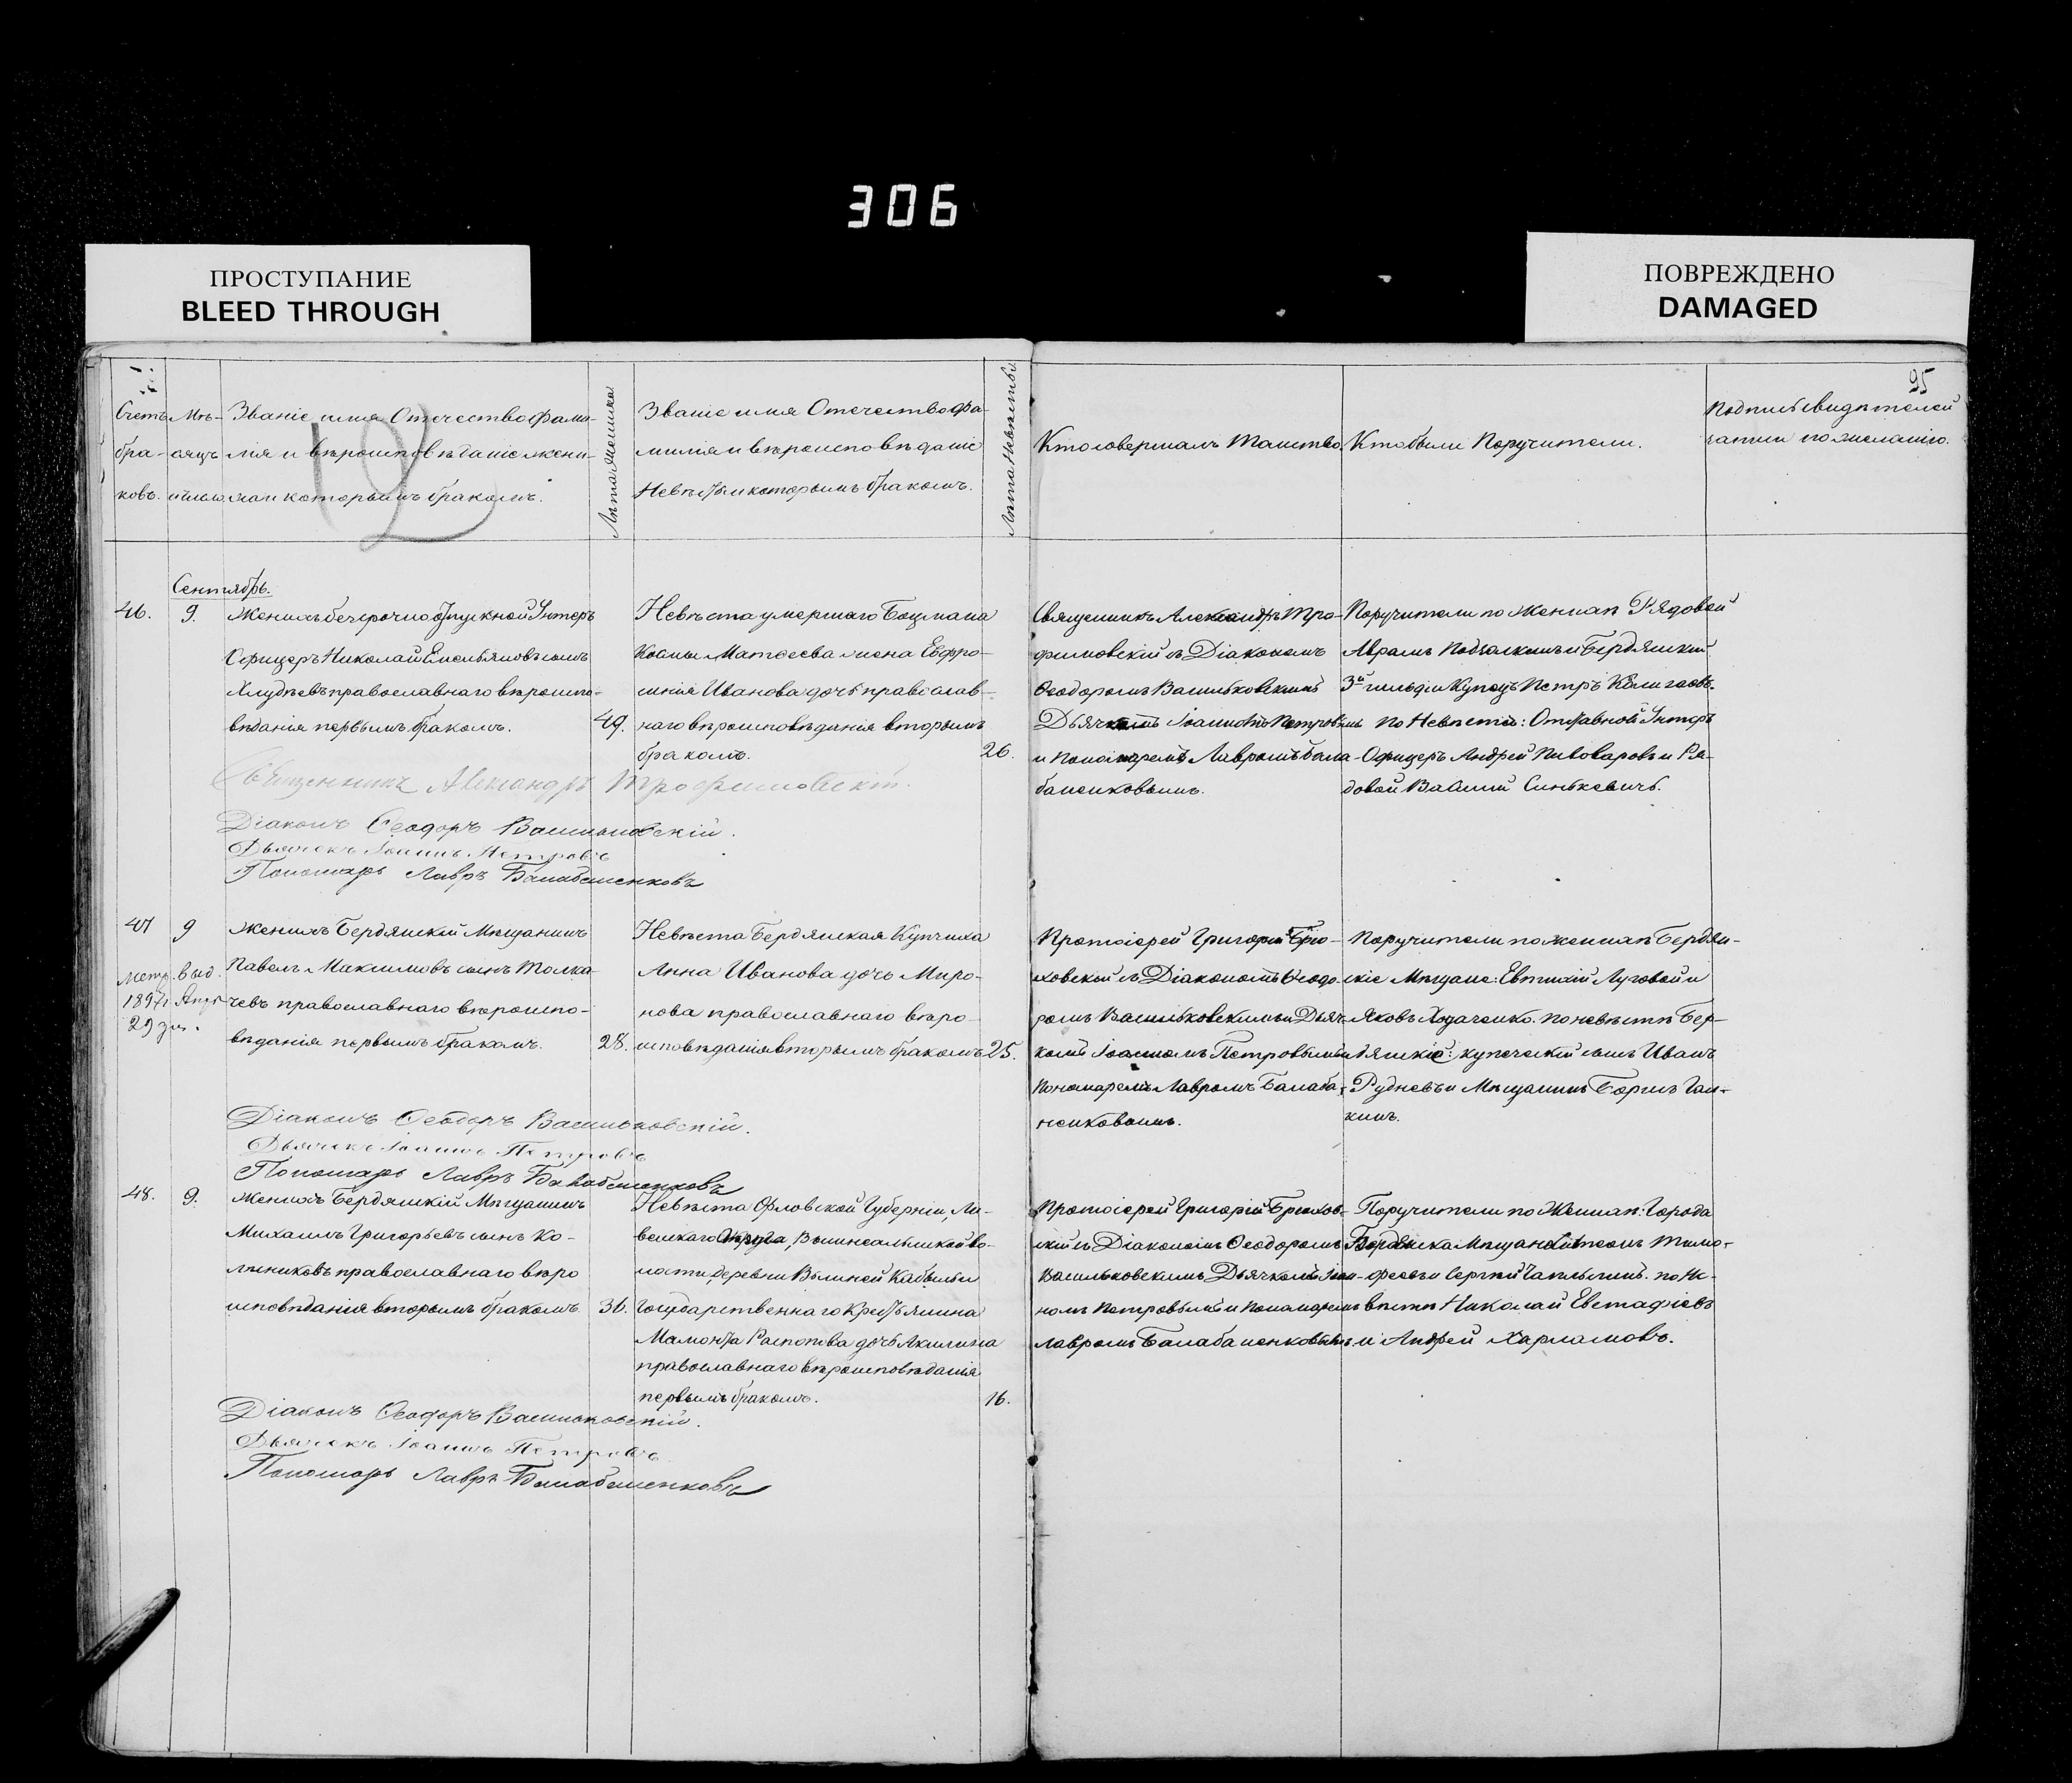 306
ПРОСТУПАНИЕ
BLEED THROUGH
ПОВРЕЖДЕНО
DAMAGED
95
Счетъ
бра-
ковъ.
Мѣ-
сяцъ
и число
Званіе имя Отечество фами-
лія и вѣроисповѣданіе жени-
ха и которымъ бракомъ.
Лѣта жениха
Званіе имя Отечество фа-
милія и вѣроисповѣданіе
Невѣсты и которымъ бракомъ.
Лѣта Невѣсты
Кто совершалъ Таинство.
Кто были Поручители.
Подписъ свидѣтелей
записи по желанію.
Сентябрь.
46.
9.
Женихъ безсрочно отпускной Унтеръ
Офицеръ Николай Емельяновъ сынъ
Хлудѣевъ православнаго вѣроиспо-
вѣданія первымъ бракомъ.
49.
Невѣста умершаго Боцмана
Космы Матѳеева жена Евфро-
синія Иванова дочь православ-
наго вѣроисповѣданія вторымъ
бракомъ.
26.
Священникъ Александръ Тро-
фимовскій съ Діакономъ
Ѳеодоромъ Васильковскимъ
Дьячкомъ Іоанномъ Петровымъ
и Пономаремъ Лавромъ Бала-
баненковымъ.
Поручители по Женихѣ Рядовой
Абрамъ и Бердянскій
3й гильдіи Купецъ Петръ
По Невѣстѣ: Отставной Унтеръ
Офицеръ Андрей Пивоваровъ и Ря-
довой Василій Синькевичъ.
Священникъ Александръ Трофимовскій.
Діаконъ Ѳеодоръ Васильковскій.
Дьячекъ Іоаннъ Петровъ
Пономарь Лавръ Балабаненковъ
47
9
метр. выд.
1897 г. Апр.
29 дня.
Женихъ Бердянскій Мѣщанинъ
Павелъ Максимовъ сынъ Толка-
чевъ православнаго вѣроиспо-
вѣданія первымъ бракомъ.
28.
Невѣста Бердянская Купчиха
Анна Иванова дочь Миро-
нова православнаго вѣро-
исповѣданія вторымъ бракомъ
25.
Протоіерей Григорій Брю-
ховскій съ Діакономъ Ѳеодо-
ромъ Васильковскимъ и Дьяч-
комъ Іоанномъ Петровымъ и
Пономаремъ Лавромъ Балаба-
ненковымъ.
Поручители по женихѣ Бердян-
скіе Мѣщане: Евтихій Луговой и
Яковъ Ходаченко. по невѣстѣ Бер-
дянскіе: купеческій сынъ Иванъ
Рудневъ и Мѣщанинъ Борисъ Гал-
кинъ.
Діаконъ Ѳеодоръ Васильковскій.
Дьячекъ Іоаннъ Петровъ
Пономарь Лавръ Балабаненковъ
48.
9.
Женихъ Бердянскій Мѣщанинъ
Михаилъ Григорьевъ сынъ Ко-
лѣсниковъ православнаго вѣро
исповѣданія вторымъ бракомъ.
31.
Невѣста Орловской Губерніи, Ли-
венскаго Округа, во-
лости, деревни
Государственнаго Крестьянина
Мамонта Распопова дочь Акилина
православнаго вѣроисповѣданія
первымъ бракомъ.
16.
Протоіерей Григорій Брюхов-
скій съ Діакономъ Ѳеодоромъ
Васильковскимъ Дьячкомъ Іоан-
номъ Петровымъ и Пономаремъ
Лавромъ Балабаненковымъ.
Поручители по Женихѣ: Города
Бердянска Мѣщане Тимо-
феевъ и Сергѣй по Не-
вѣстѣ Николай Евстафіевъ
и Андрей Харламовъ.
Діаконъ Ѳеодоръ Васильковскій.
Дьячекъ Іоаннъ Петровъ
Пономарь Лавръ Балабаненковъ